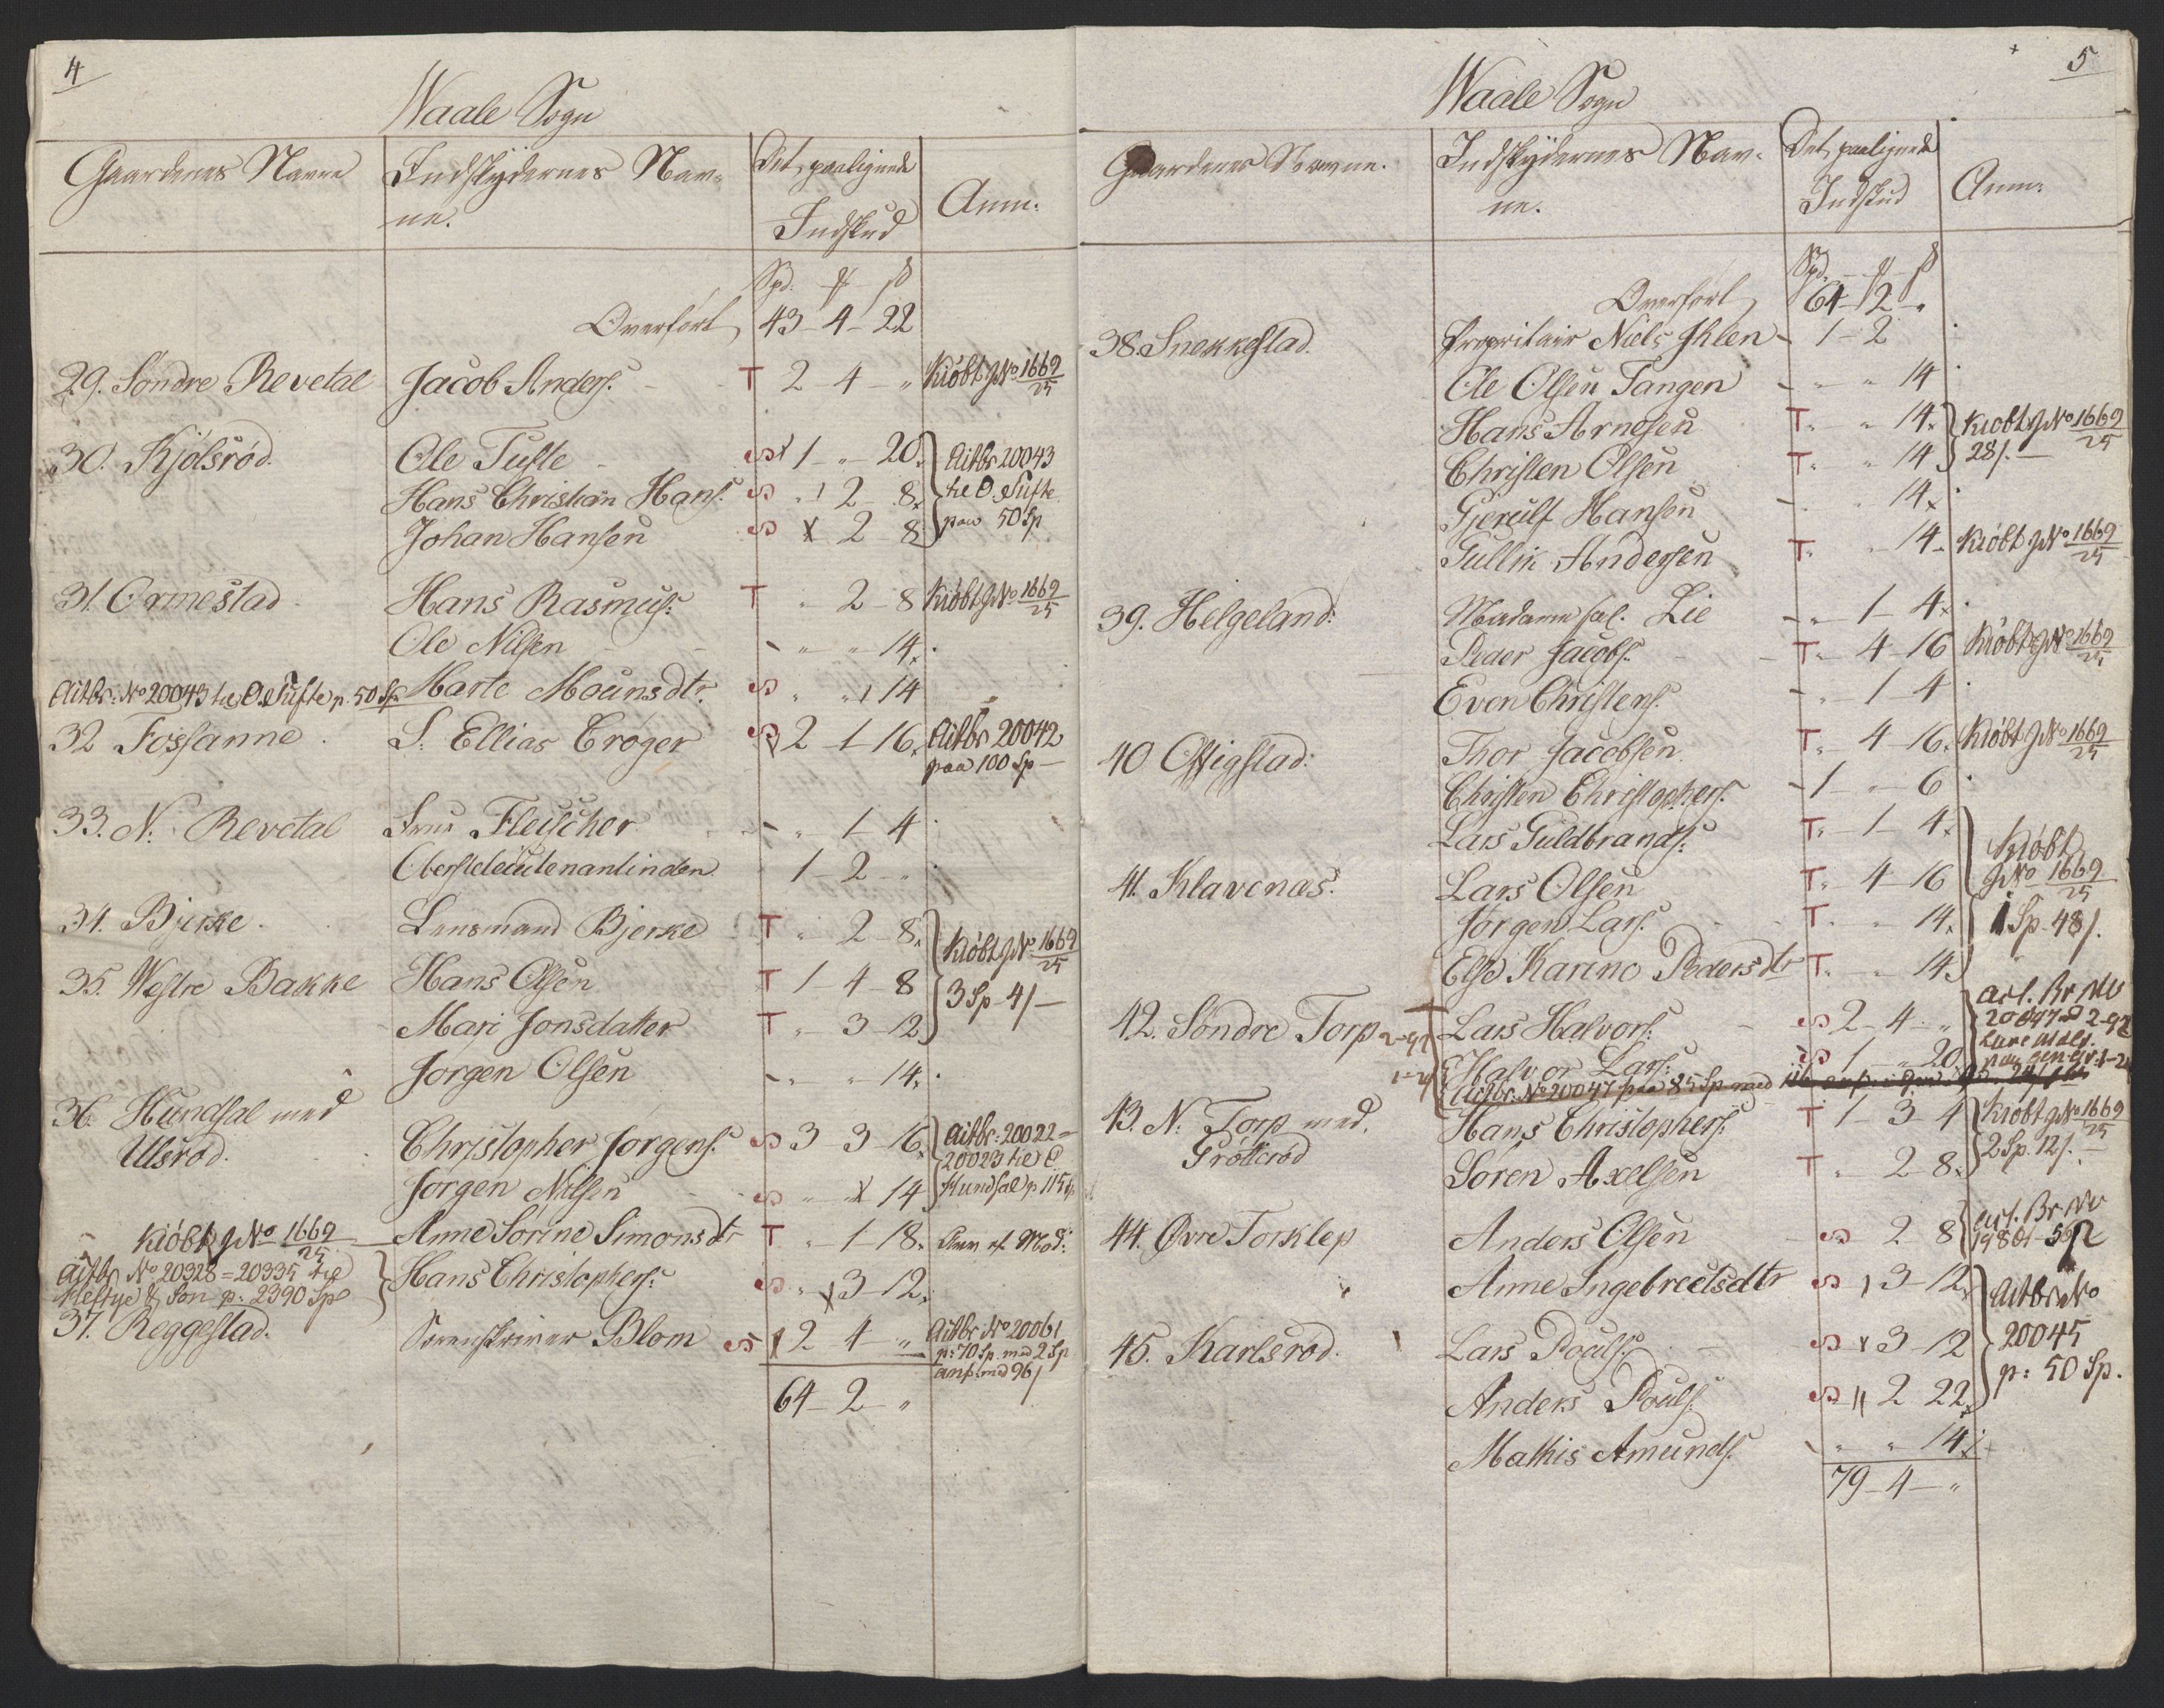 4
Waale Sogn
Gaardenes Navne Indskydernes Nav- Det paalignede Anm:
ne. Indskud
Spd.
Overført 43-4-22
29. Søndre Revetal Jacob Anders: T 2 4 - „ Kiøbt J No 1669/25
30. Kjølsrød. Ole Tufte S 1 - „ - 20. Aitbr 20043
Hans Christian Hans: S „ 2 - 8. til O. Tufte
Johan Hansen S 2 8 paa 50 Sp
31. Ormestad Hans Rasmus: T „ 2 - 8 Kiøbt J No 1669/25
Ole Nilsen - „ - „ - 14.
Aitbr: No 20043 til Ole Tufte p. 50 Sp. Marte Mounsdtr S „ „ 14
32 Fossanne S. Ellias Crøger S 2 - 1 - 16. Aitbr 20042
paa 100 Sp -
33. N. Revetal Frue Fleischer - „ - 1 - 4
Obersteleutenantinden 1 - 2 - „
34. Bjerke. Lensmand Bjerke T „ 2 - 8. Kiøbt J No 1669/25
35. Westre Bakke Hans Olsen T 1 - 4 - 8 3 Sp - 4/-
Mari Jonsdatter T „ - 3 - 12
Jørgen Olsen - „ - „ - 14.
36. Hundsal med
Ulsrød. Christopher Jørgens: S 3 - 3 - 16. Aitbr: 20022 =
20023 til C.
Jørgen Nilsen S „ 14 Hundsal p 115 Sp
Kiøbt J No 1669/25 Anne Sørine Simonsdtr T „ - 1 - 18.
Aitbr No 20328 = 20335 til Hans Christophers: S „ 3 - 12.
Heftye & Søn p: 2390 Spd
37. Reggestad. Sorenskriver Blom S 2 4 „ Aitbr No 20061
p: 70 Sp. med 2 Sp
anf. med 96/
64 - 2 - „
5
Waale Sogn
Gaardenes Navne. Indskydernes Nav- Det paalignede Anm:
ne. Indskud
Spd.
Overført 64 - 2 - „
38. Snekkestad. Propritair Niels Ihlen - 1 - 2
Ole Olsen Tangen - „ - „ 14
Hans Arnesen T „ „ 14. Kiøbt J No 1669/25
Christen Olsen T „ „ 14 28/. -
Gjerulf Hansen - „ „ 14.
Gullik Andersen T „ - 14. Kiøbt J No 1669/25
39. Helgeland: Madame sal. Lie - „ - 1 - 4.
Peder Jacobs: T „ 4 - 16 Kiøbt J No 1669/25
Even Christens: - „ - 1 - 4
40 Oftigstad: Thor Jacobsen T „ 4 - 16. Kiøbt J No 1669/25
Christen Christophers: - 1 - „ - 6
Lars Guldbrands: T „ - 1 - 4. Kiøbt
41. Klavenæs: Lars Olsen T „ 4 - 16 J No 1669/25
Jørgen Lars: T „ „ 14. 1 Sp - 48/.
Else Karine Pedersdtr T „ - „ 14
42. Søndre Torp Lars Halvors: S 2 - 4 - „
Halvor Lars: S 1 - „ 20
Aitbr: No 20047 paa 85 Sp. med
43. N. Torp med. Hans Christophers: T 1 - 3 - 4 Kiøbt J No 1669/25
Grøtterød Søren Axelsen T „ 2 - 8. 2 Sp. 12/. -
44. Øvre Torklep Anders Olsen S 2 8
Anne Ingebretsdtr S 3 - 12. Aitbr No
45. Karlsrød. Lars Pouls: S 3 - 12 20045
Anders Pouls: S 2 22. p: 50 Sp.
Mathis Amunds: „ „ 14
79 - 4 - „